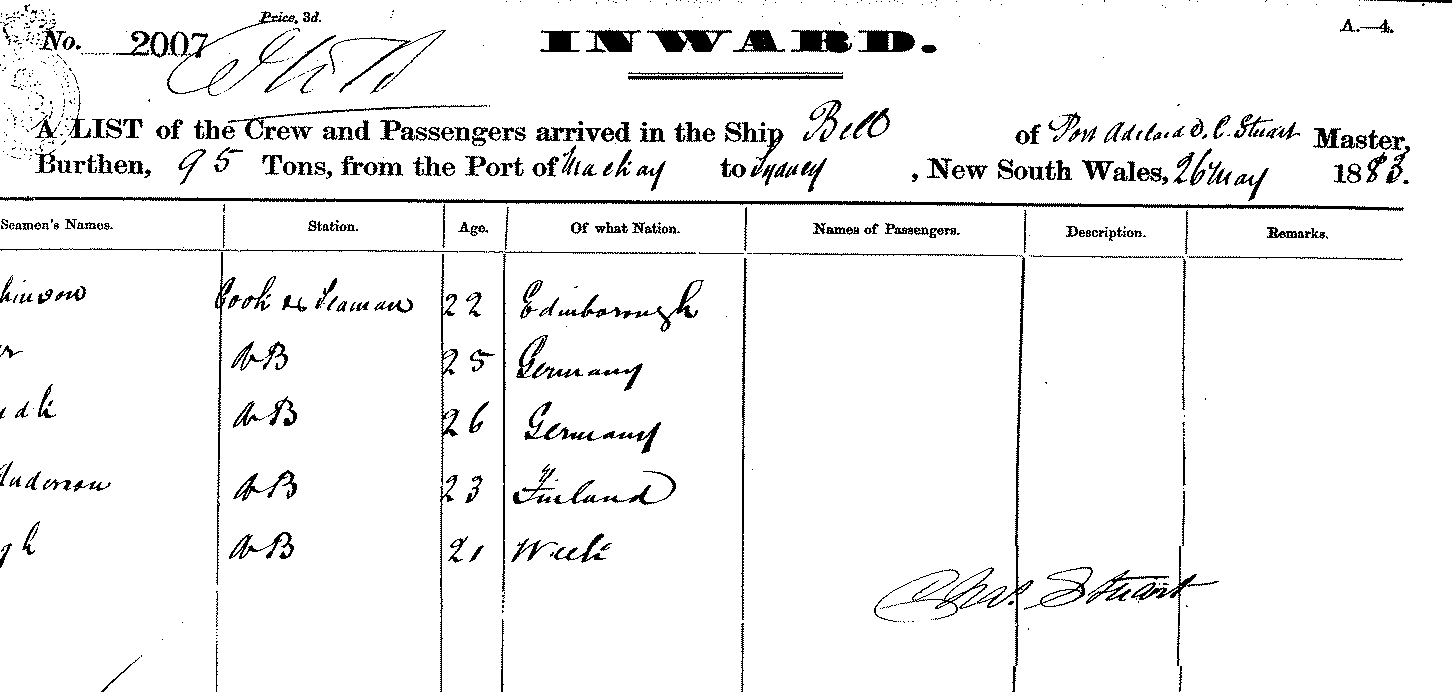 Price, 3d.
No. 2007
INWARD.
A.—4.
A LIST of the Crew and Passengers arrived in the Ship Bell of Port Adelaid D. C. Stuart Master,
Burthen, 95 Tons, from the Port of Mackay to Sydney, New South Wales, 26 May 1883.
Seamen's Names. Station. Age. Of what Nation. Names of Passengers. Description. Remarks.
hinson Cook & Seaman 22 Edinborough
er AB 25 Germany
AB 26 Germany
Anderson AB 23 Finland
gh AB 21 Wick
Chas. Stuart